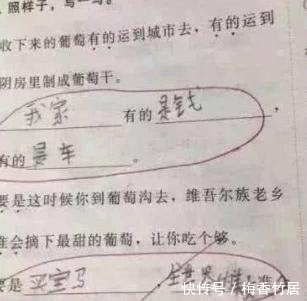 照样子,写一写。
收下来的葡萄有的运到城市去,有的运到
阴房里制成葡萄干。
我家 有的 是钱
有的 是车 。
要是这时候你到葡萄沟去,维吾尔族老乡
准会摘下最甜的葡萄,让你吃个够。
要是 买宝马
快传号/梅香竹居